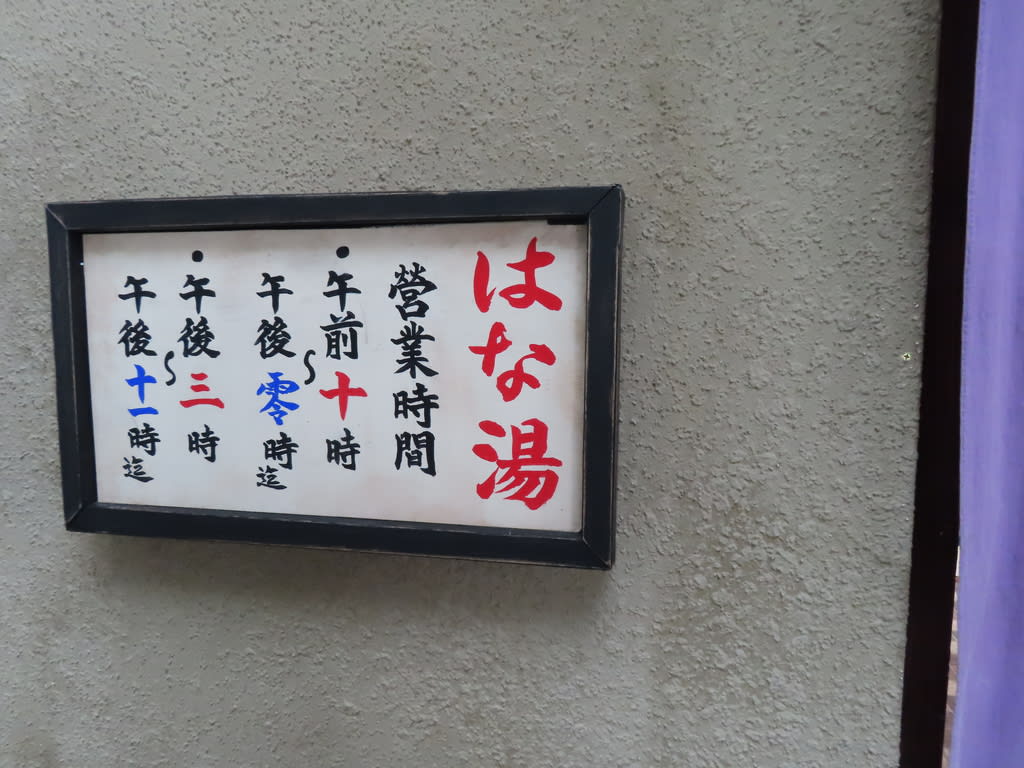 はな湯
營業時間
・午前十時
〜
午後零時迄
・午後三時
〜
午後十一時迄